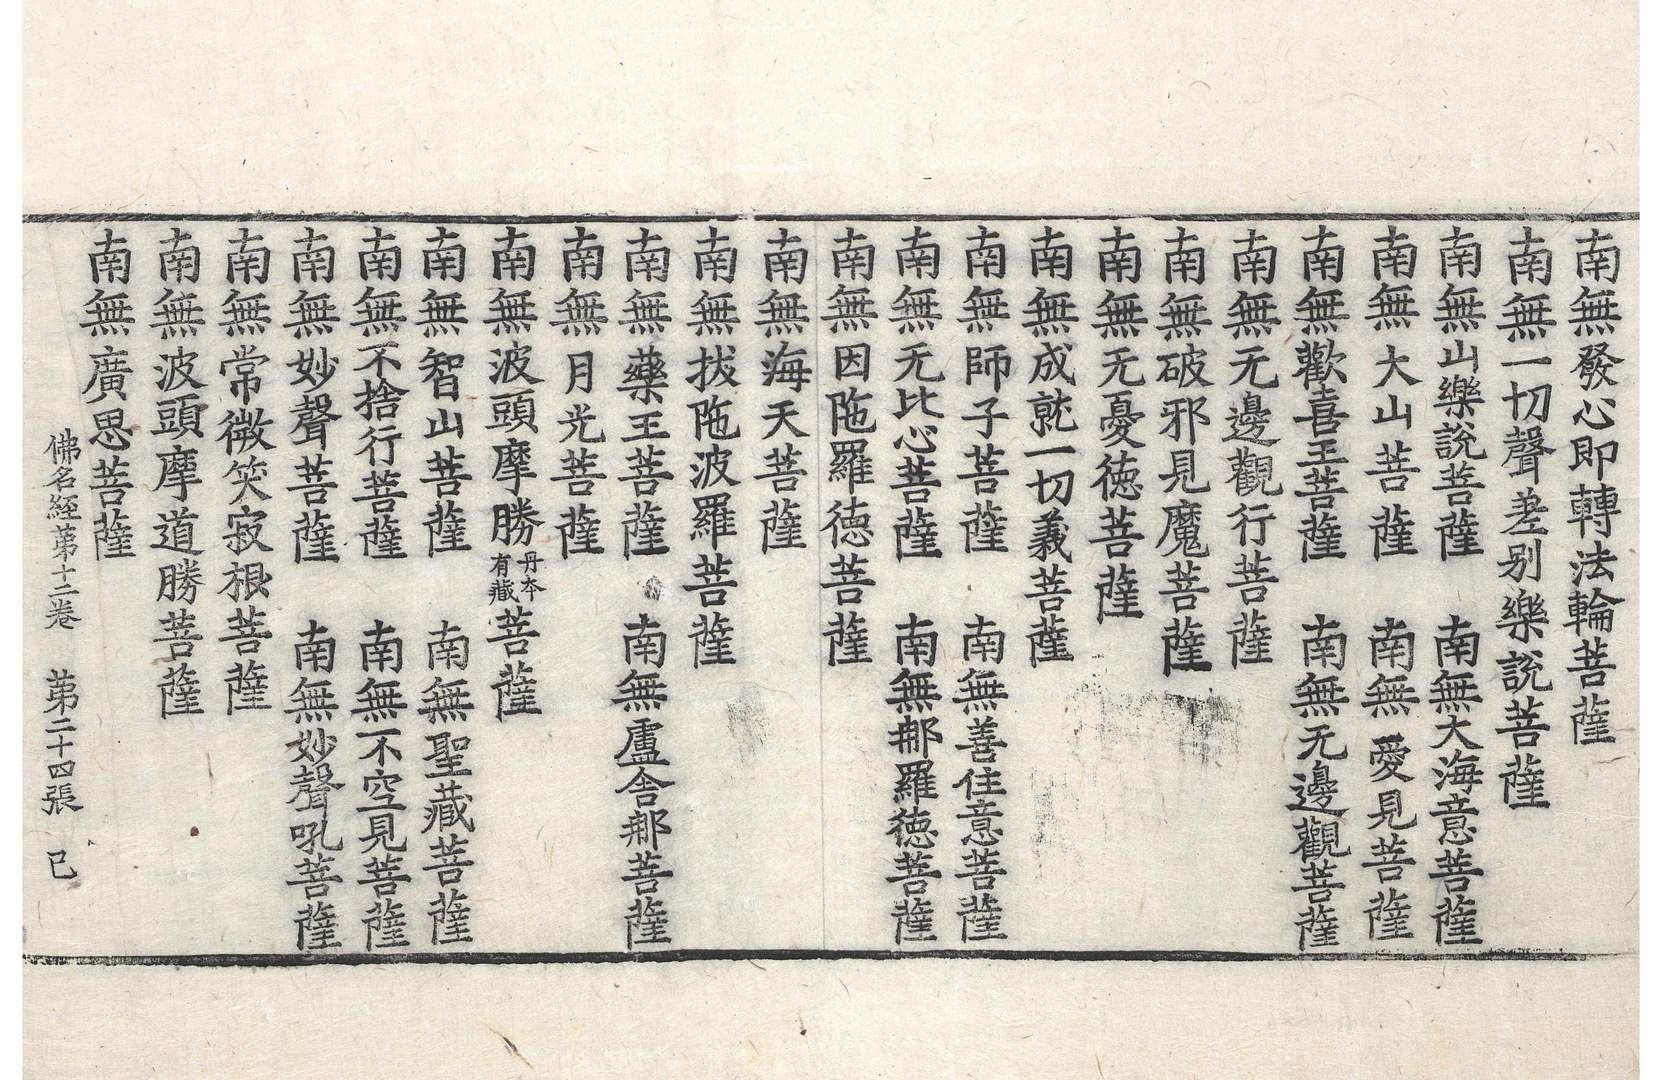 南無發心即轉法輪菩薩
南無一切聲差別樂說菩薩
南無山樂說菩薩　南無大海意菩薩
南無大山菩薩　南無愛見菩薩
南無歡喜王菩薩　南無无邊觀菩薩
南無无邊觀行菩薩
南無破邪見魔菩薩
南無无憂德菩薩
南無成就一切義菩薩
南無師子菩薩　南無善住意菩薩
南無无比心菩薩　南無那羅德菩薩
南無因陁羅德菩薩
南無海天菩薩
南無拔陁波羅菩薩
南無藥王菩薩　南無盧舍那菩薩
南無月光菩薩
南無波頭摩勝丹本有藏菩薩
南無智山菩薩　南無聖藏菩薩
南無不捨行菩薩　南無不空見菩薩
南無妙聲菩薩　南無妙聲吼菩薩
南無常微笑寂根菩薩
南無波頭摩道勝菩薩
南無廣思菩薩
佛名經第十二卷　第二十四張　已